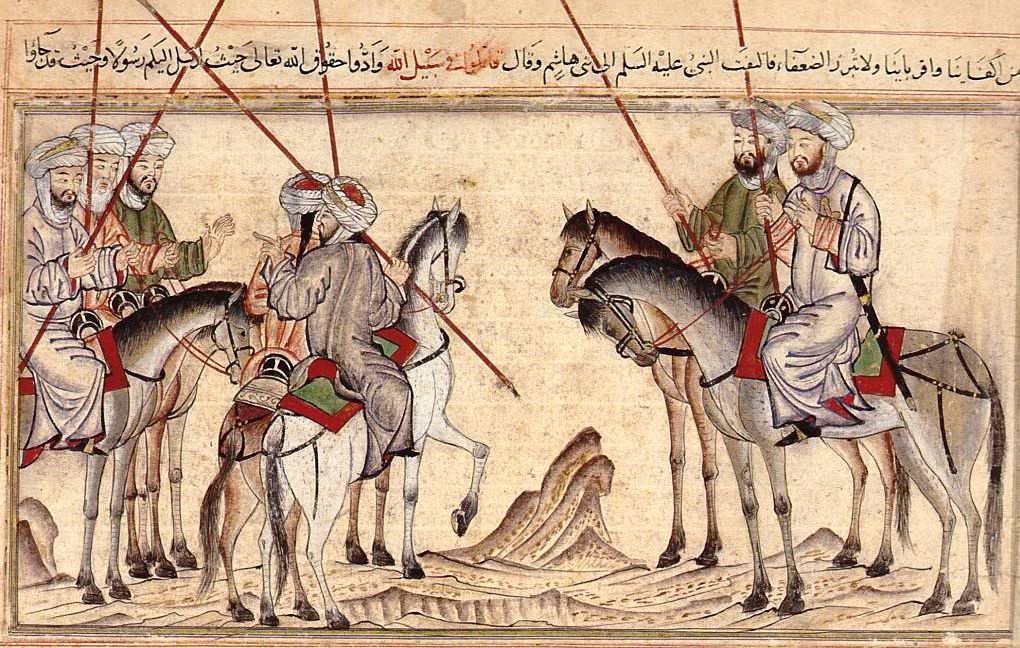 من اكفاينا واقرباينا ولا نبرز الضعفاء فالتفت النبي عليه السلم الى بني هاشم وقال قاتلوا في سبيل الله وادوا حقوق الله تعالى حيث ارسل اليكم رسولا وحيث قد جاؤا